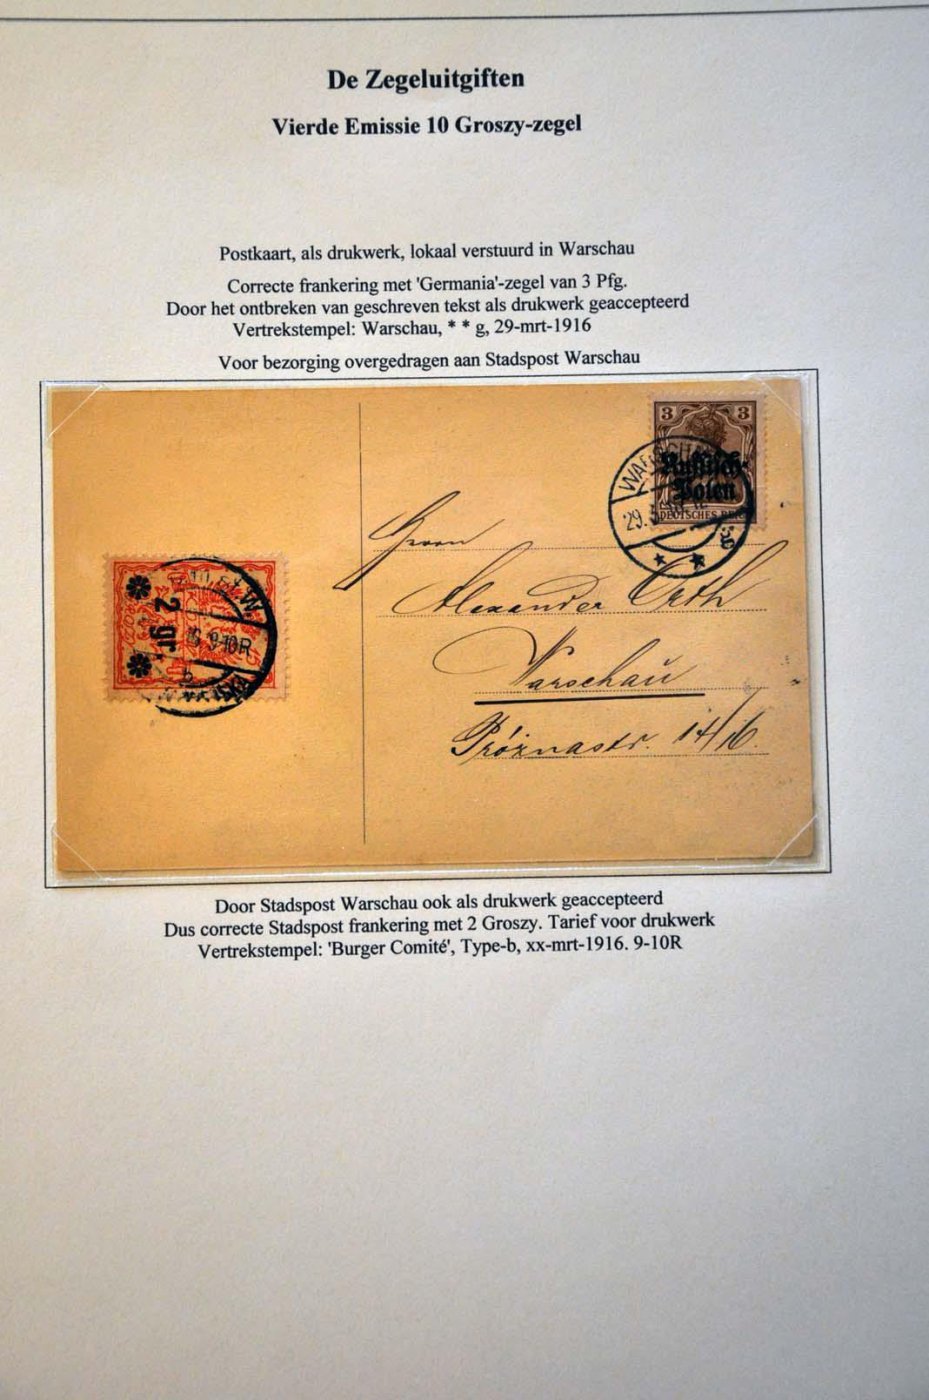 De Zegeluitgiften
Vierde Emissie 10 Groszy-zegel
Postkaart, als drukwerk, lokaal verstuurd in Warschau
Correcte frankering met 'Germania'-zegel van 3 Pfg.
Door het ontbreken van geschreven tekst als drukwerk geaccepteerd
Vertrekstempel: Warschau, * * g, 29-mrt-1916
Voor bezorging overgedragen aan Stadspost Warschau
3 3
Russisch-
Polen
DEUTSCHES REICH
WARSCHAU
29.3
Herrn
Alexander Orth
Warschau
Próżnastr. 14/16.
2 gr.
9-10R
Door Stadspost Warschau ook als drukwerk geaccepteerd
Dus correcte Stadspost frankering met 2 Groszy. Tarief voor drukwerk
Vertrekstempel: 'Burger Comité', Type-b, xx-mrt-1916. 9-10R